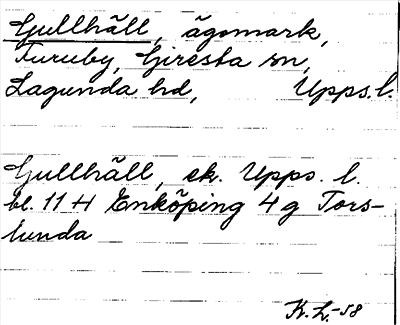 Gullhäll, ägomark,
Furuby, Giresta sn,
Lagunda hd, Upps. l.
Gullhäll, ek. Upps. l.
bl. 11 H Enköping 4 g Tors-
lunda
K. L. -58